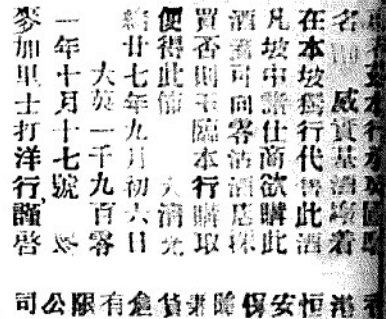 本行
名 威 基酒 着
在本坡獨行代售此酒
凡坡中諸仕商欲購此
酒 可向零沽酒店採
買否則玉臨本行購取
便得此佈 大清光
緒廿七年九月初六日
大英一千九百零
一年十月十七號
麥加里士打洋行謹啓
香港恒安保險兼貨倉有限公司